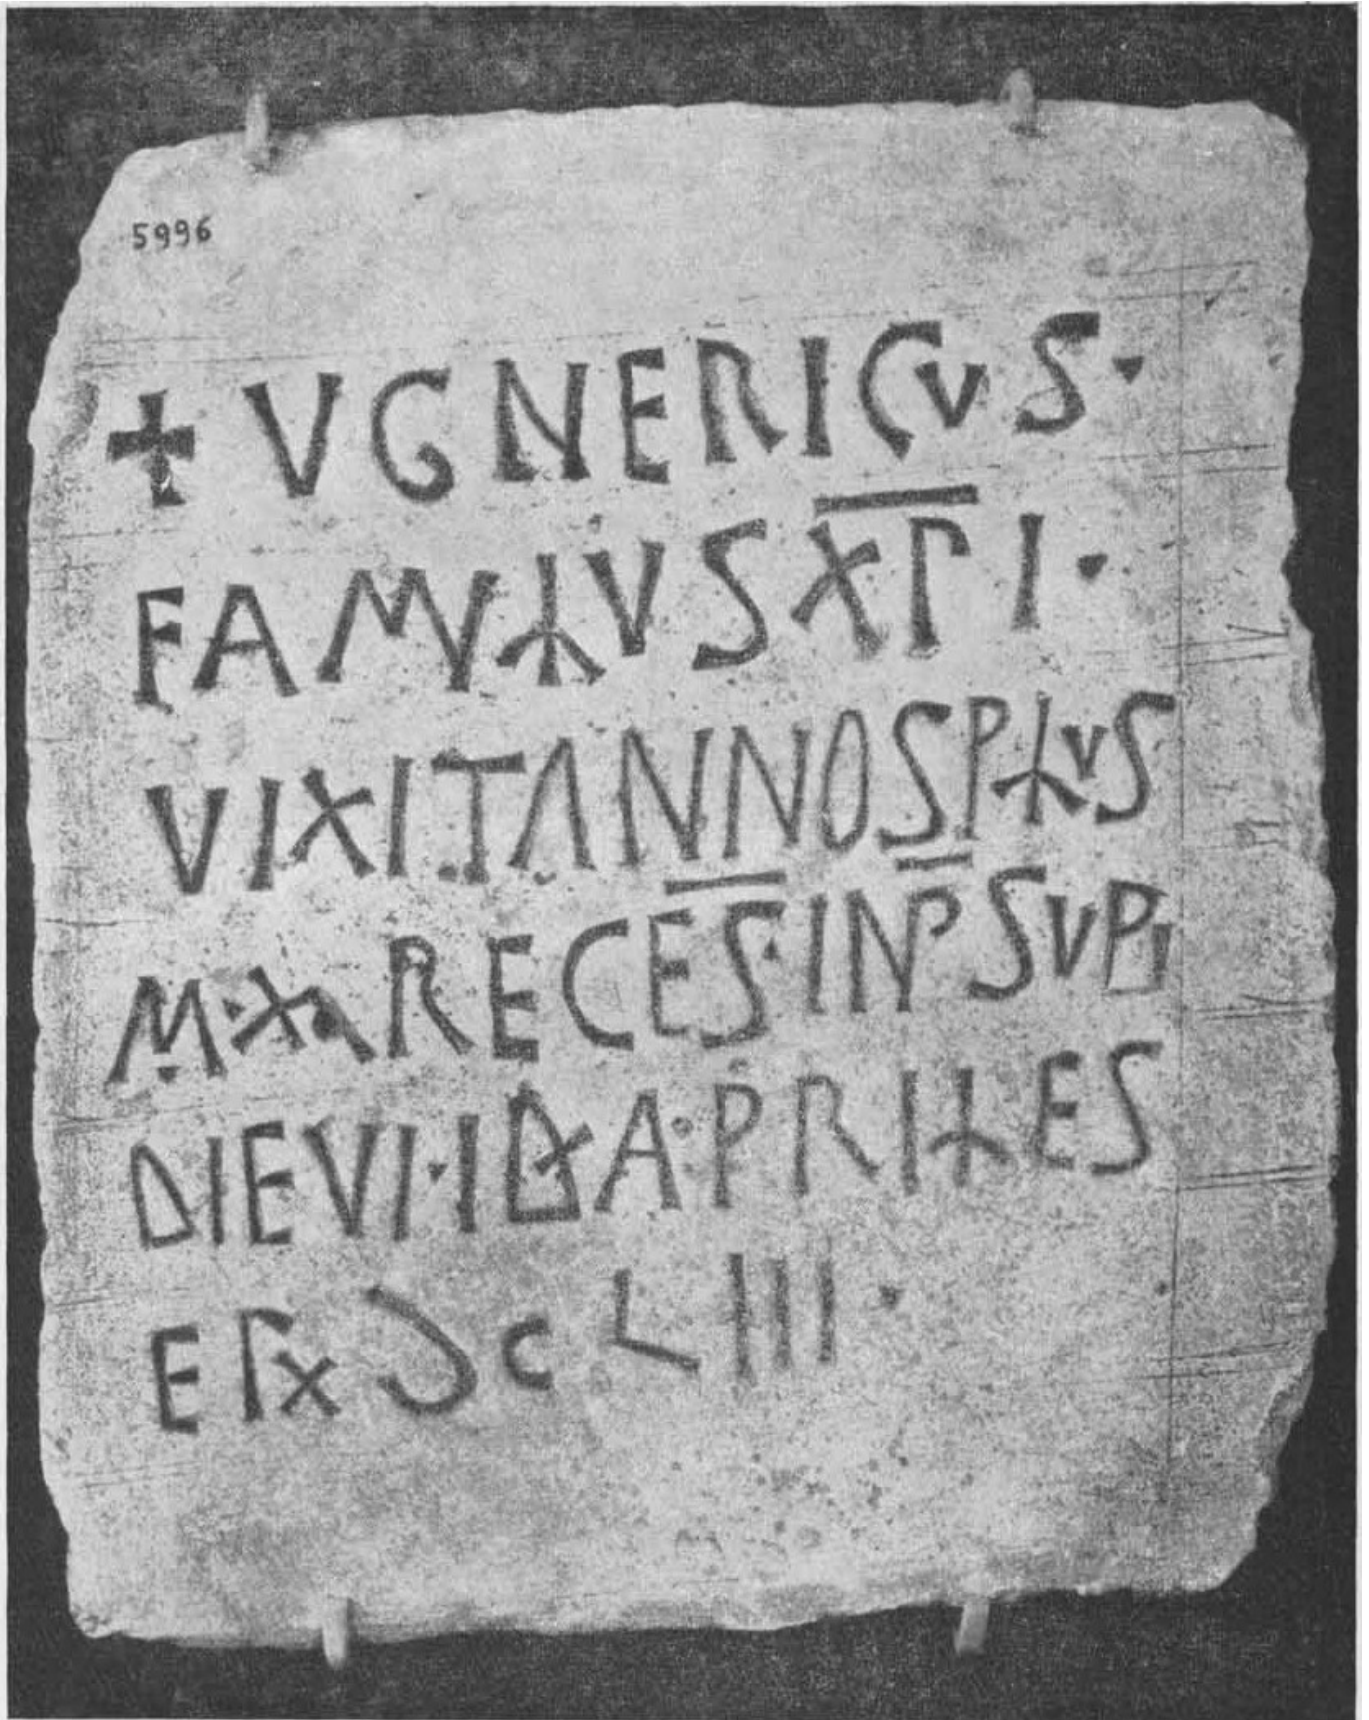 5996
+ VGNERICVS·
FAMVLVS XPI·
VIXIT ANNOS PLVS
M·XL RECES·IN P SVB
DIE VI·ID APRILES
ER DCLIII·